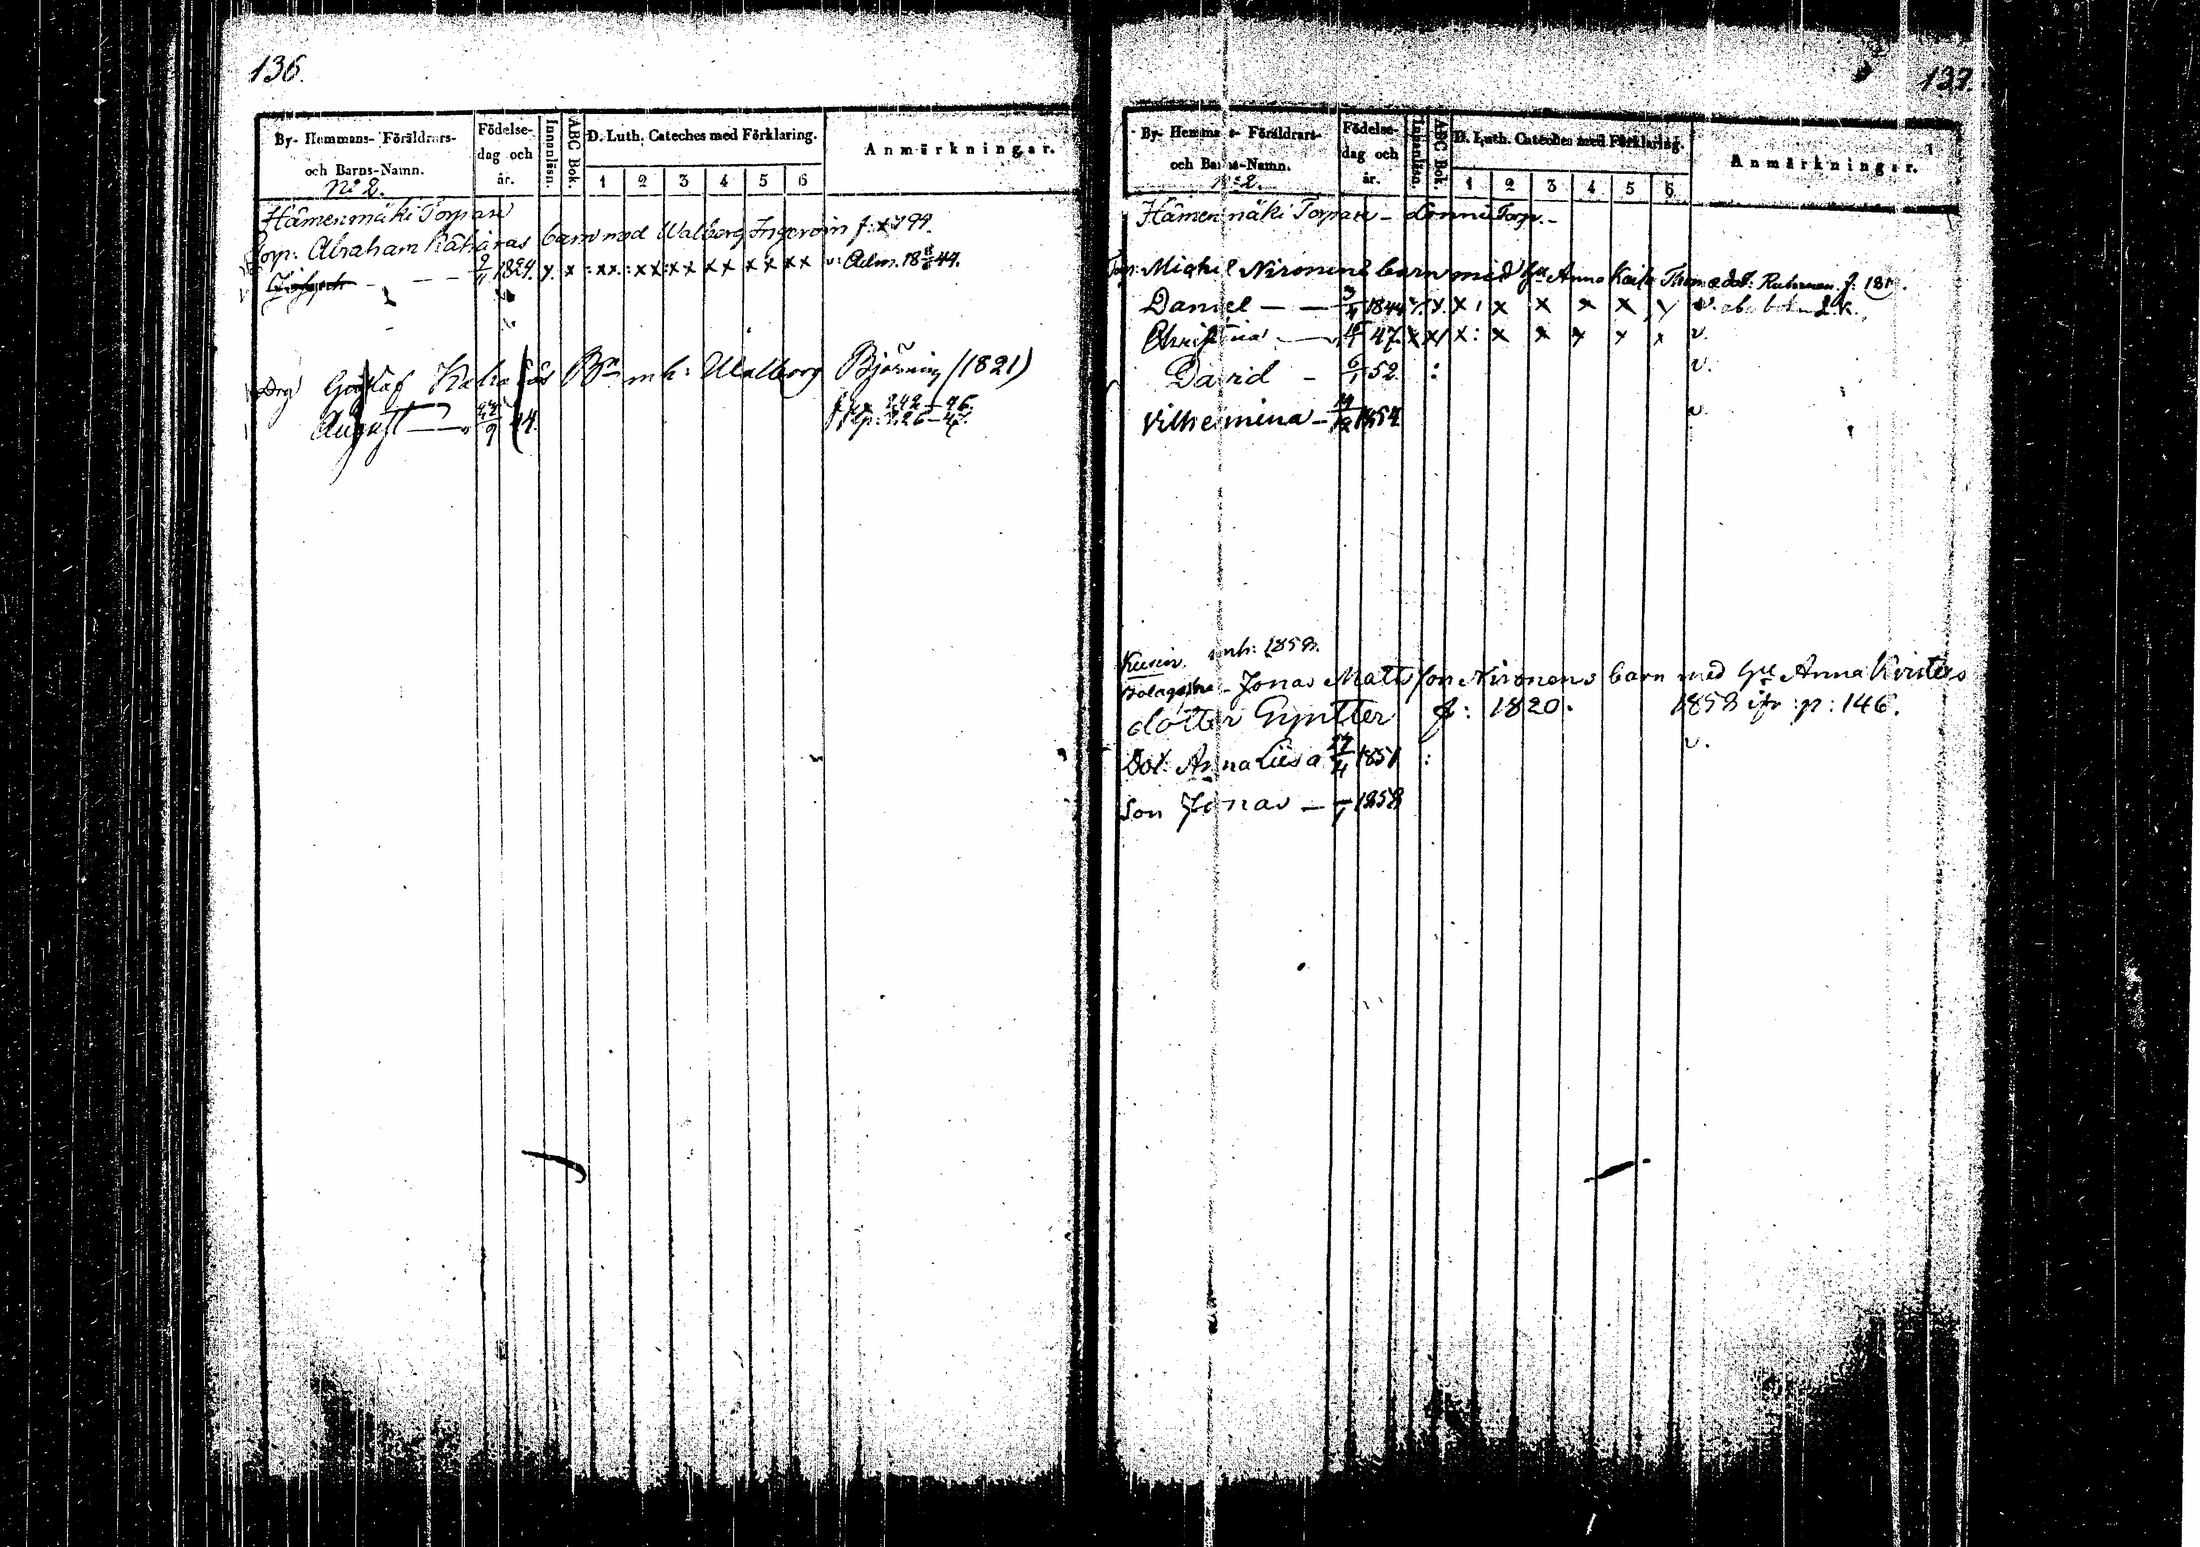 136.
By- Hemmans- Föräldrars- och Barns-Namn.
Födelse-dag och år.
Innanläsn.
ABC Bok.
D. Luth. Cateches med Förklaring.
1 2 3 4 5 6
Anmärkningar.
No 2.
Hämenmäki Torpare
Torp: Abraham Kähäräs barn med Walborg Ingeroin f: 1799.
9/11 1824. v: Adm. 18 44.
Drg Gustaf Bn m h: Walborg Björning (1821)
August 9 44.
p. 242 - 46.
p. 226 - 47.
137.
By- Hemmans- Föräldrars- och Barns-Namn.
Födelse-dag och år.
Innanläsn.
ABC Bok.
D. Luth. Cateches med Förklaring.
1 2 3 4 5 6
Anmärkningar.
No 2.
Hämenmäki Torpare - Torp. -
Torp: Michel Nironens barn med Hu Anna Kaisa Thomædot: f:
Daniel - - 3/4 1844 x x x x x x v.
Christina - 47. x x x: x x x x x v.
David - 6/1 52. : v.
Vilhelmina - 19/12 1854 v.
inh: 1858.
Jonas Matts son Nironens barn med Hu Anna Kristers
dotter Gyntter f: 1820. 1858 ifr: p: 146.
Dot. Anna Liisa 27/4 1851 : v.
Son Jonas - 1858